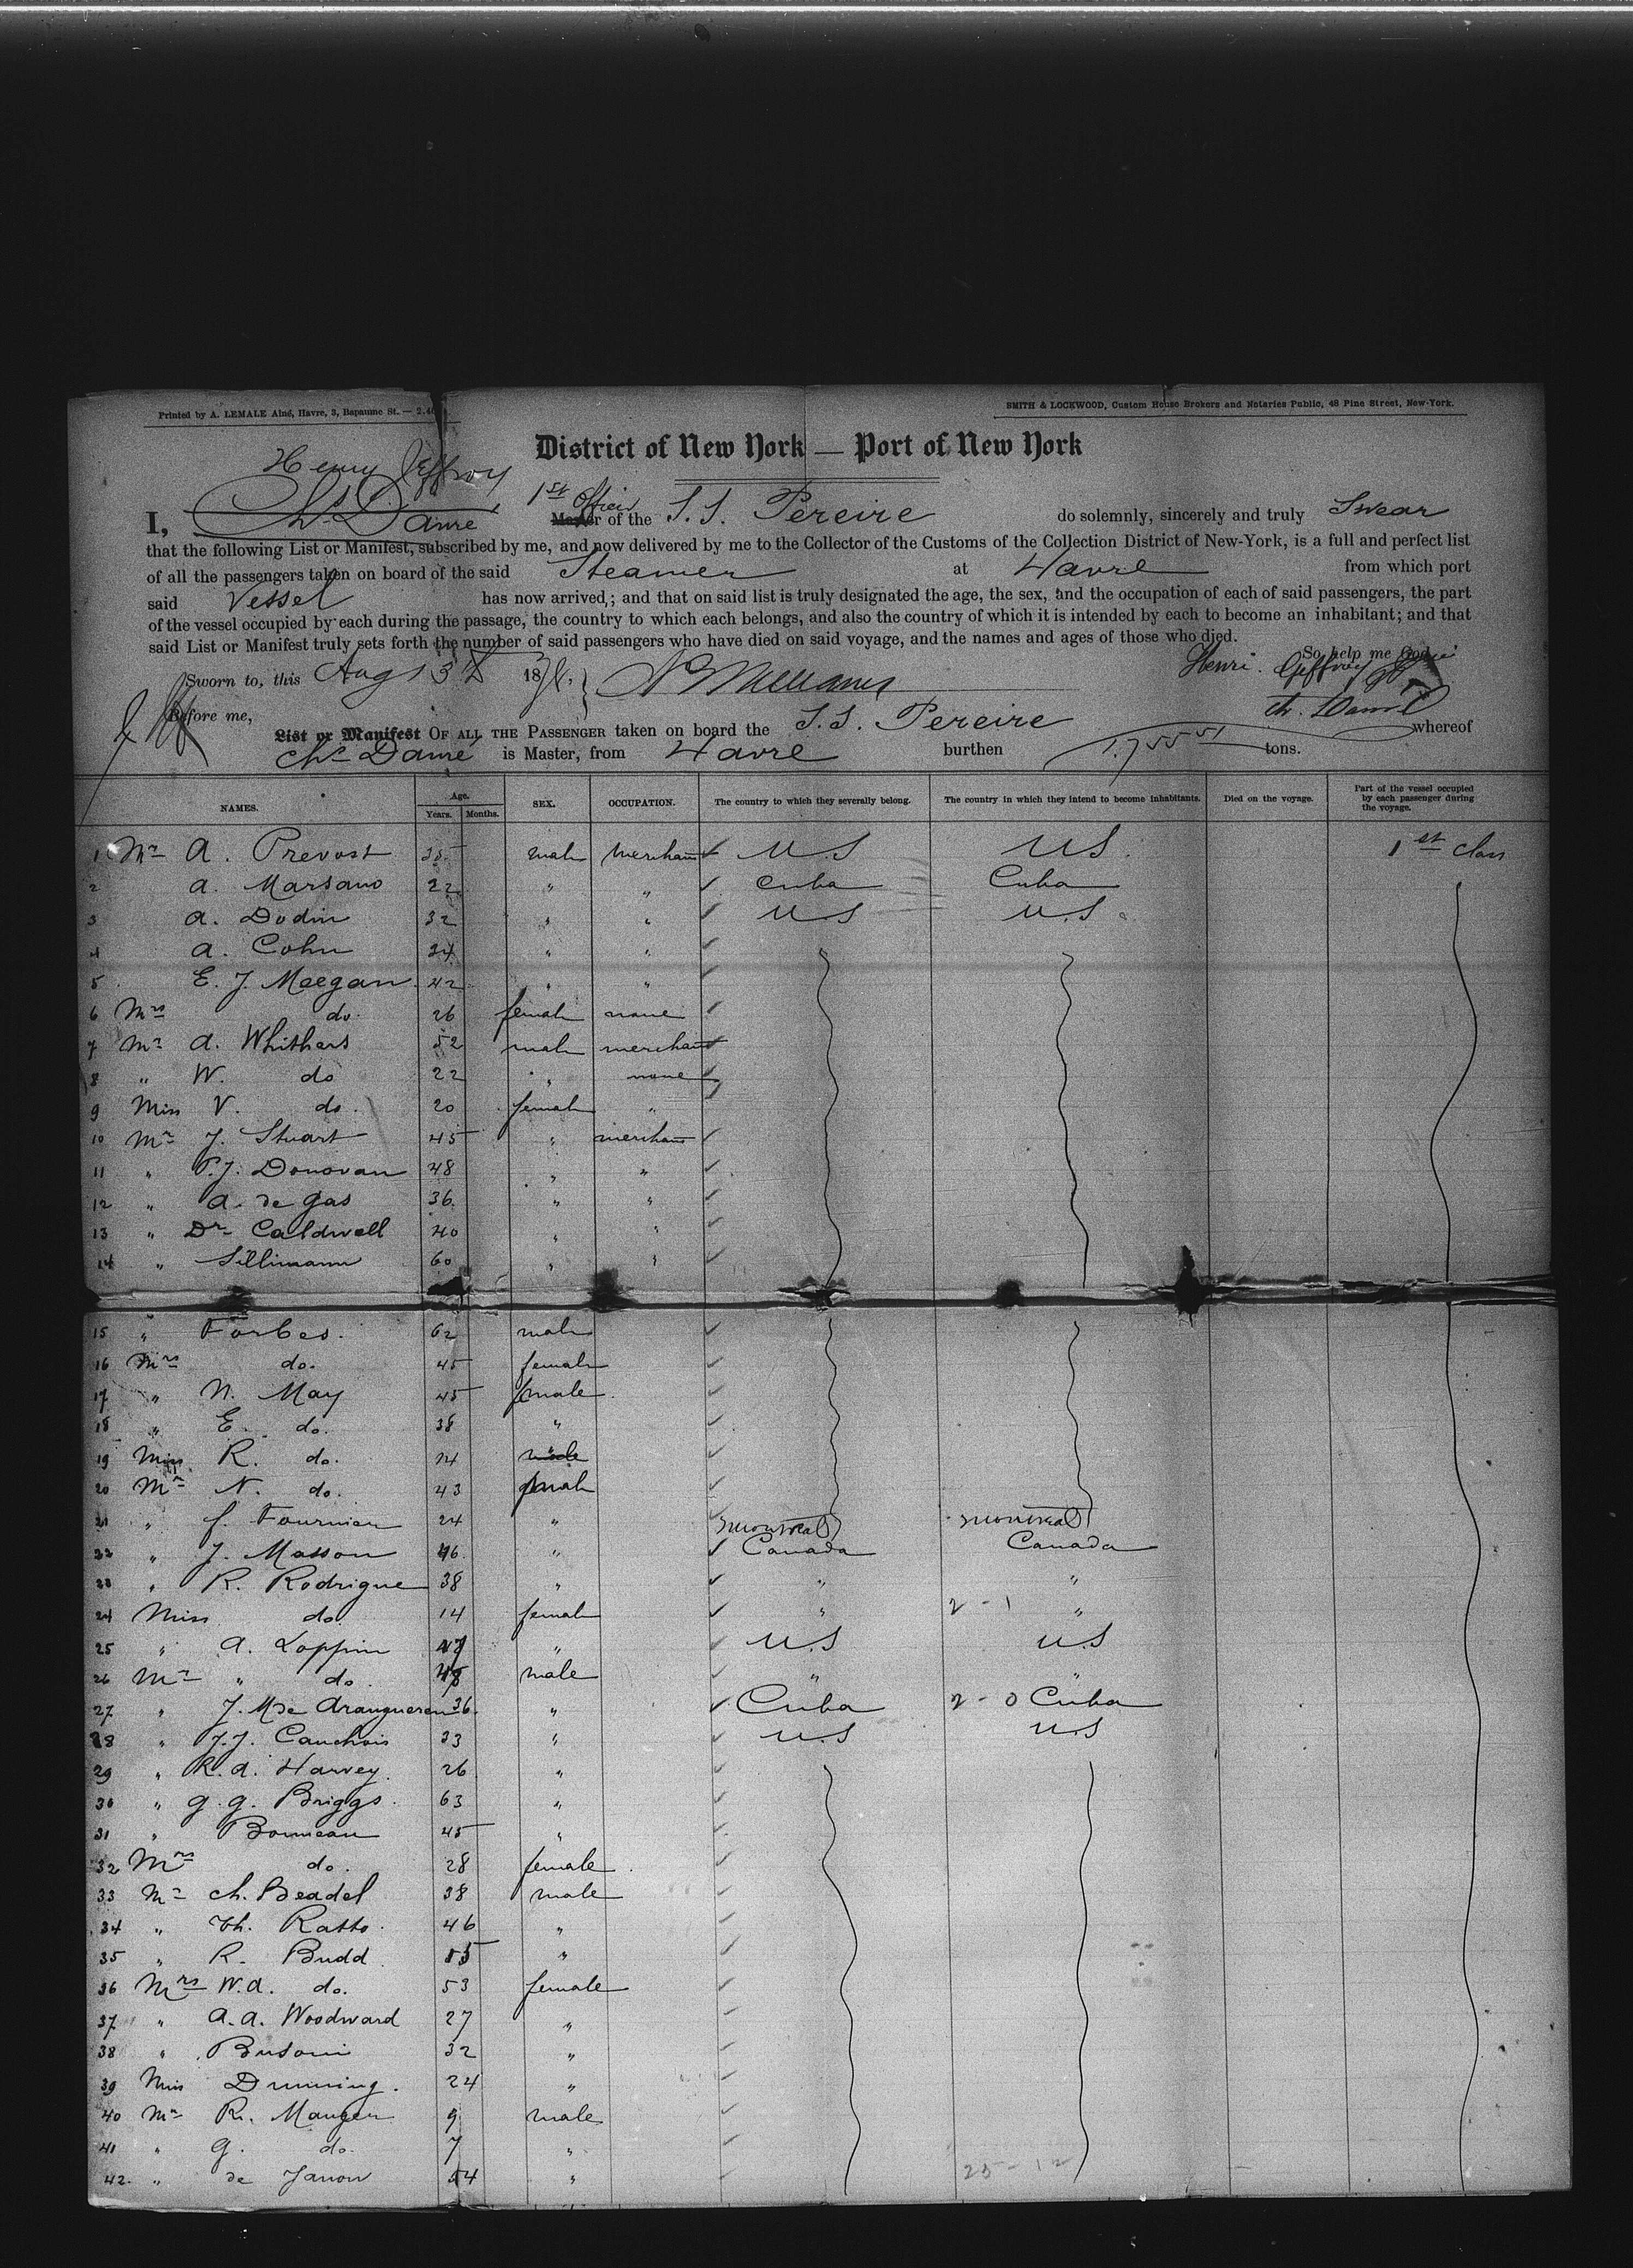 Printed by A. LEMALE Aîné, Havre, 3, Bapaume St. — 2.4
SMITH & LOCKWOOD, Custom House Brokers and Notaries Public, 48 Pine Street, New-York.
District of New York — Port of New York
Henry Jeffroy
I, Chs Danré 1st Officer Master of the S.S. Pereire do solemnly, sincerely and truly Swear
that the following List or Manifest, subscribed by me, and now delivered by me to the Collector of the Customs of the Collection District of New-York, is a full and perfect list
of all the passengers taken on board of the said Steamer at Havre from which port
said Vessel has now arrived; and that on said list is truly designated the age, the sex, and the occupation of each of said passengers, the part
of the vessel occupied by each during the passage, the country to which each belongs, and also the country of which it is intended by each to become an inhabitant; and that
said List or Manifest truly sets forth the number of said passengers who have died on said voyage, and the names and ages of those who died.
So help me God
Sworn to, this Aug 3 18 Henri
Before me,
List or Manifest OF ALL THE PASSENGER taken on board the S.S. Pereire whereof
Chs Danré is Master, from Havre burthen 1.755 51 tons.
NAMES. Age. Years. Months. SEX. OCCUPATION. The country to which they severally belong. The country in which they intend to become inhabitants. Died on the voyage. Part of the vessel occupied by each passenger during the voyage.
1 Mr A. Prevost 35 male merchant U.S U.S. 1st class
2 A. Marsano 22 " " Cuba Cuba
3 A. Dodin 32 " " U.S U.S
4 A. Cohn 34 " "
5 E. J. Meegan 42 " "
6 Mrs do 26 female none
7 Mr A. Whithers 52 male merchant
8 " W. do 22 " none
9 Miss V. do. 20 female "
10 Mr J. Stuart 45 " merchant
11 " P.J. Donovan 48 " "
12 " A. de Gas 36 " "
13 " Dr Caldwell 40 " "
14 " Sillimann 60 " "
15 " Forbes. 62 male
16 Mrs do. 45 female
17 " N. May 45 female
18 " E. do. 38 "
19 Miss R. do. 14 male
20 Mr N. do. 43
21 " f. Fournier 24 " Montreal Montreal
22 " J. Masson 46 " Canada Canada
23 " R. Rodrigue 38 " " "
24 Miss do 14 female " 2 - 1 "
25 " A. Loppin " U.S U.S
26 Mr " do. male " "
27 " J. M de Arangueren 36. " Cuba 2 - 0 Cuba
28 " J.J. Cauchois 33 " U.S U.S
29 " R.A. Harvey 26 "
30 " G.G. Briggs. 63 "
31 " Bonneau 45 "
32 Mrs do. 28 female
33 Mr Ch. Beadel 38 male
34 " Th. Ratto. 46 "
35 " R. Budd "
36 Mrs W.A. do. 53 female
37 " A.A. Woodward 27 "
38 " Busoni 32 "
39 Miss Drunning. 24 "
40 Mr R. Mauger 9 male
41 " G. do. 7 "
42. " de Janon 54 "
25 - 12